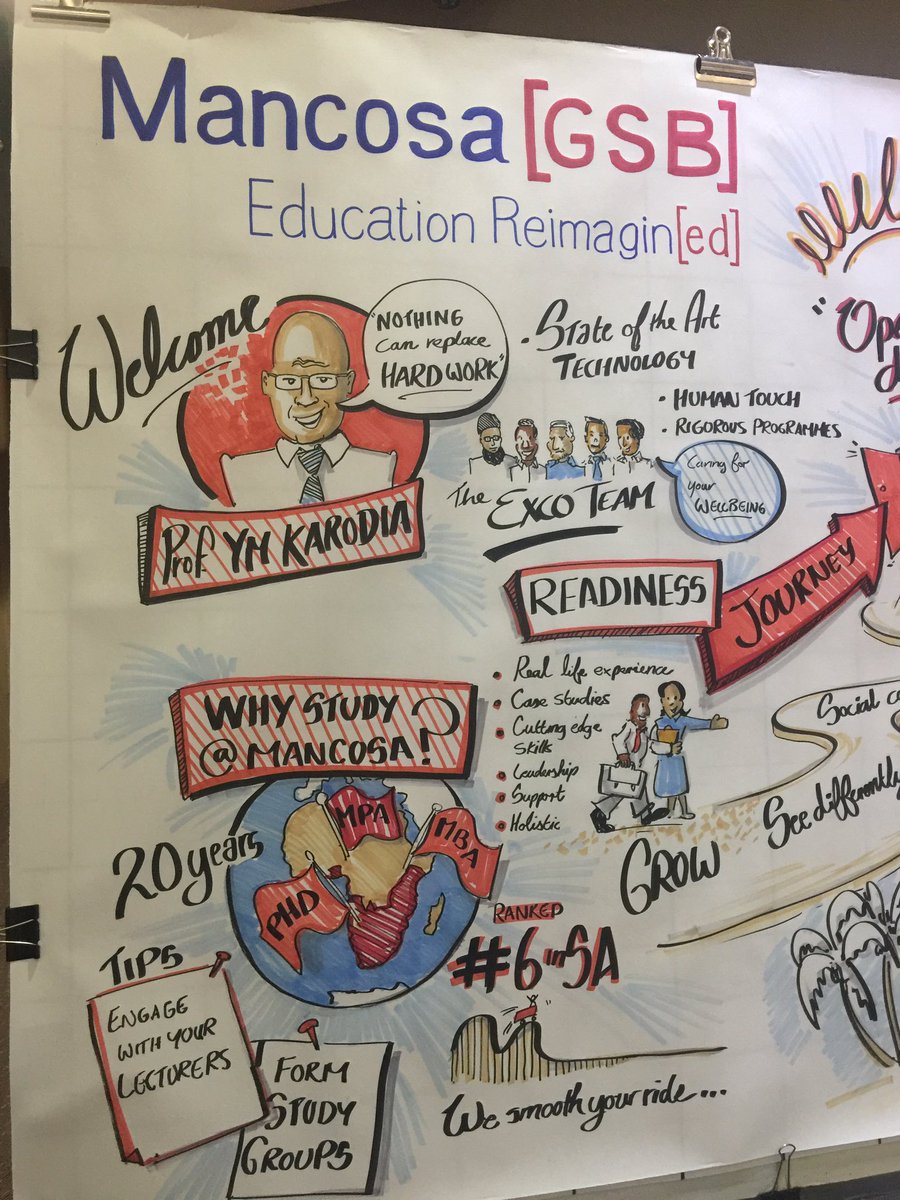 Mancosa [GSB]
Education Reimagin[ed]
Welcome
"NOTHING
Can replace
HARD WORK"
Prof. YM KARODIA
• State of the Art
TECHNOLOGY
• HUMAN TOUCH
• RIGOROUS PROGRAMMES
The EXCO TEAM
Caring for
your
WELLBEING
READINESS
JOURNEY
• Real life experience
• Case Studies
• Cutting edge
Skills
• Leadership
• Support
• Holistic
GROW
See differently
Social
WHY STUDY
@ MANCOSA?
20 years
MPA
MBA
PHD
RANKED
#6 in SA
TIPS
ENGAGE
WITH YOUR
LECTURERS
FORM
STUDY
GROUPS
We smooth your ride...